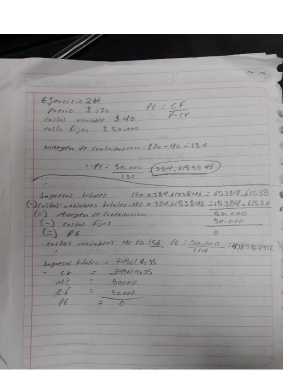 Ejercicio 2#
precio $ 170 Pt = CF
costos variables $ 40 P-CV
costo fijos $ 50.000
margen de contribucion = 170 - 40 = 130
Pt = 50.000 384,6153846
130
Ingresos totales 170 x 384,6153846 = 65384,61538
(-) costos variables totales 40 x 384,6153846 = 15384,61538
(=) Margen de contribucion 50.000
(-) costos fijos 50.000
(=) Pt 0
costos variables 40 to 56 Pt = 50.000
114
Ingresos totales =
- CV =
MC = 50000
C.f = 50000
Pt = 0